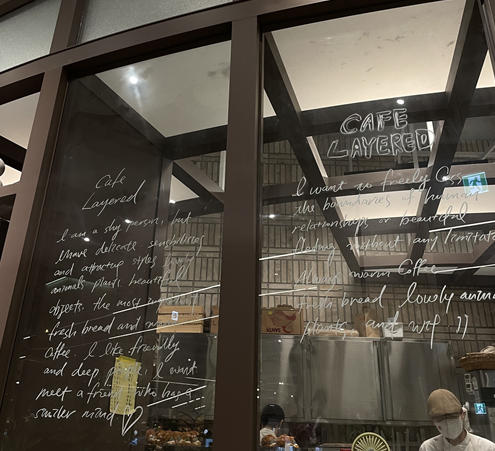 Cafe
Layered
I am a shy person, but
I have delicate sensibilities
and attractive styles
animals plants beautiful
objects. the most important
fresh bread and
Coffee. I like friendly
and deep people. I want
meet a friend who has a
similar mind
CAFE
LAYERED
I want to freely Cross
the boundaries of human
relationships or beautiful
Clothing without any limitations
Always warm Coffee
fresh bread lovely animals
plants, and wifi